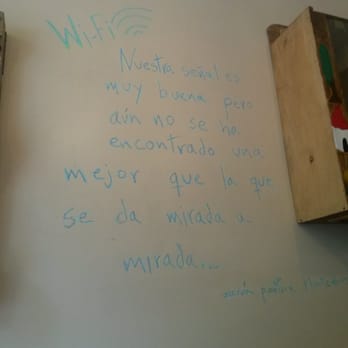 Wi-Fi
Nuestra señal es
muy buena pero
aún no se ha
encontrado una
mejor que la que
se da mirada a
mirada...
acción poética